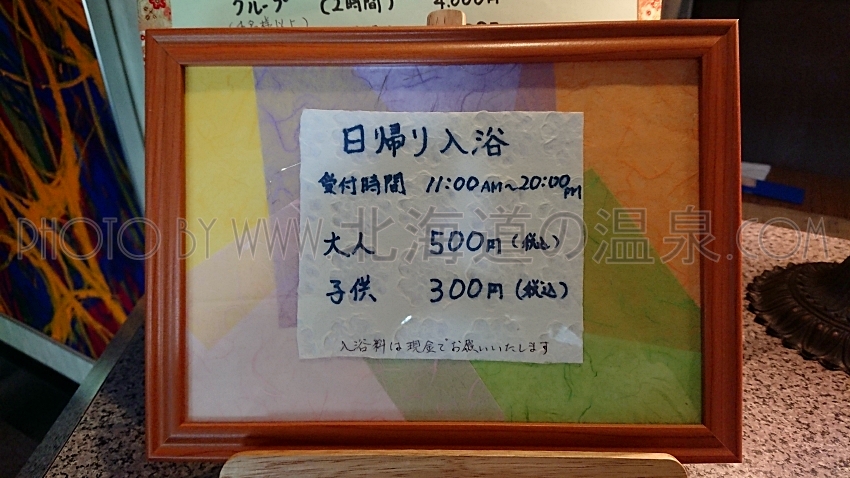 グループ (2時間) 4.000円
(4名様以上)
日帰り入浴
受付時間 11:00AM~20:00PM
PHOTO BY WWW.北海道の温泉.COM
大人 500円(税込)
子供 300円(税込)
入浴料は現金でお願いいたします